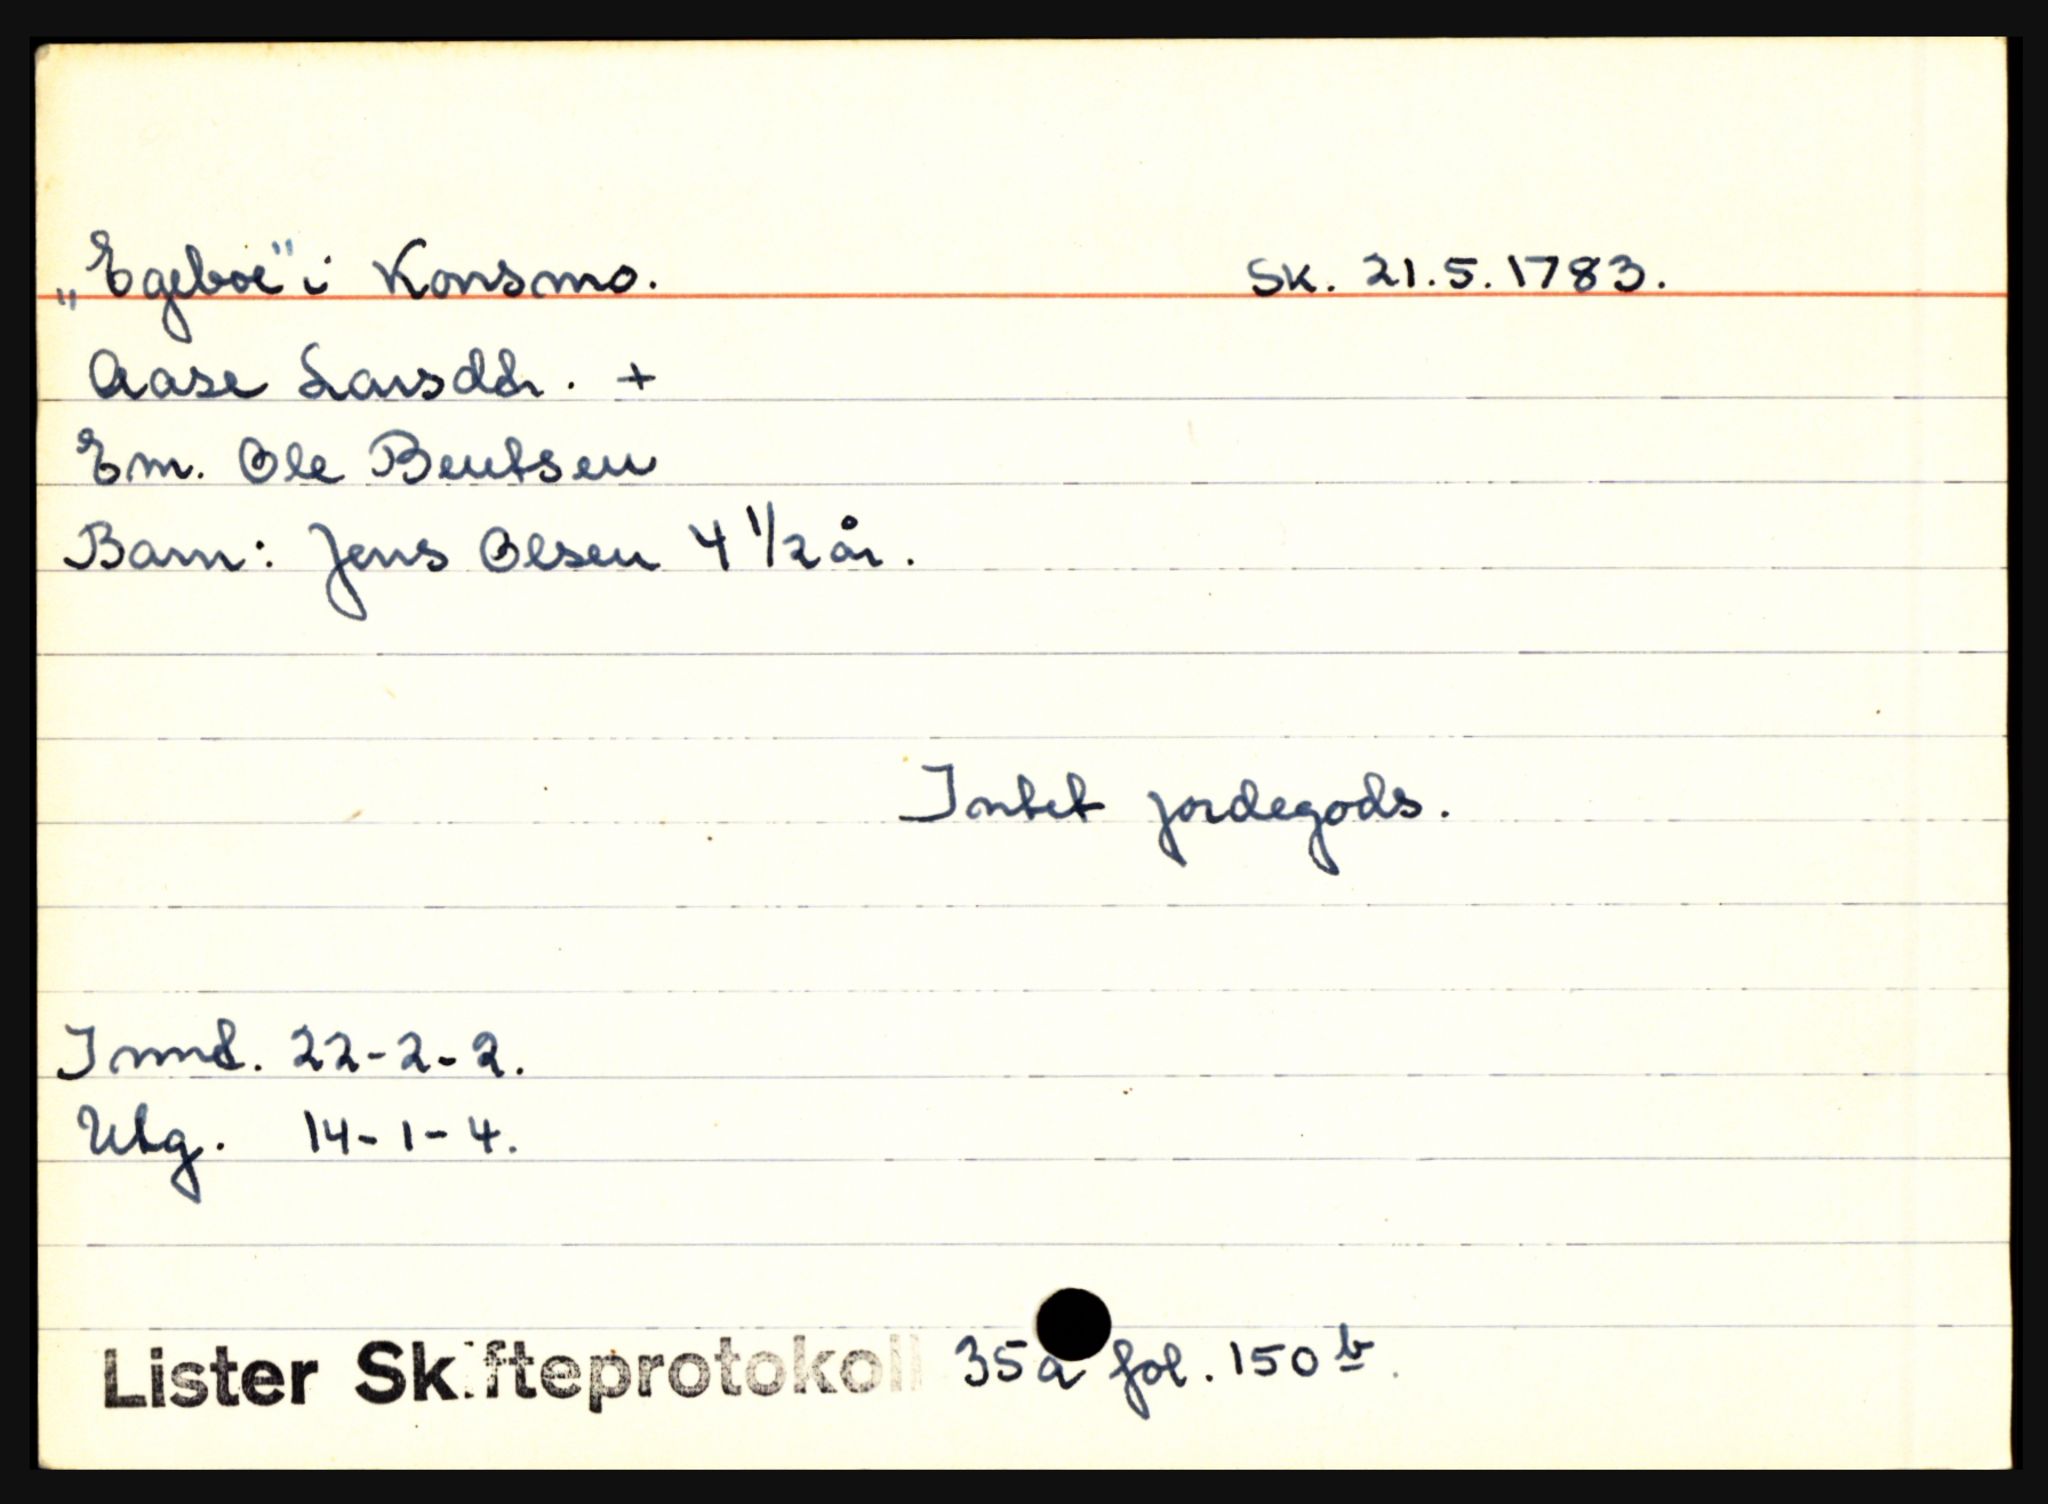 „Egeboe" i Konsmo. Sk. 21.5.1783.
Aase Larsdtr. +
Em. Ole Bentsen
Barn: Jens Olsen 4 1/2 år.
Intet jordegods.
Innt. 22-2-2.
Utg. 14-1-4.
Lister Skifteprotokoll 35a fol. 150 b.